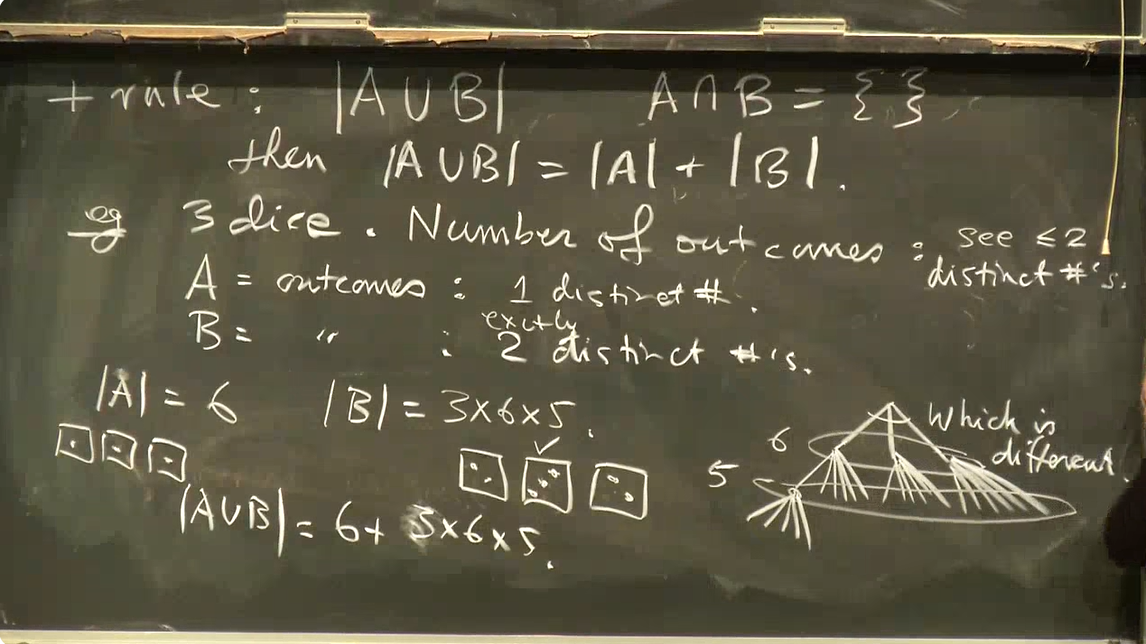 + rule : |A∪B| A∩B = { }
then |A∪B| = |A| + |B|.
eg 3 dice. Number of outcomes : see ≤ 2
distinct #'s.
A = outcomes : 1 distinct #.
exactly
B = " : 2 distinct #'s.
|A| = 6 |B| = 3×6×5.
Which is
different.
6
5
|A∪B| = 6+ 3×6×5.